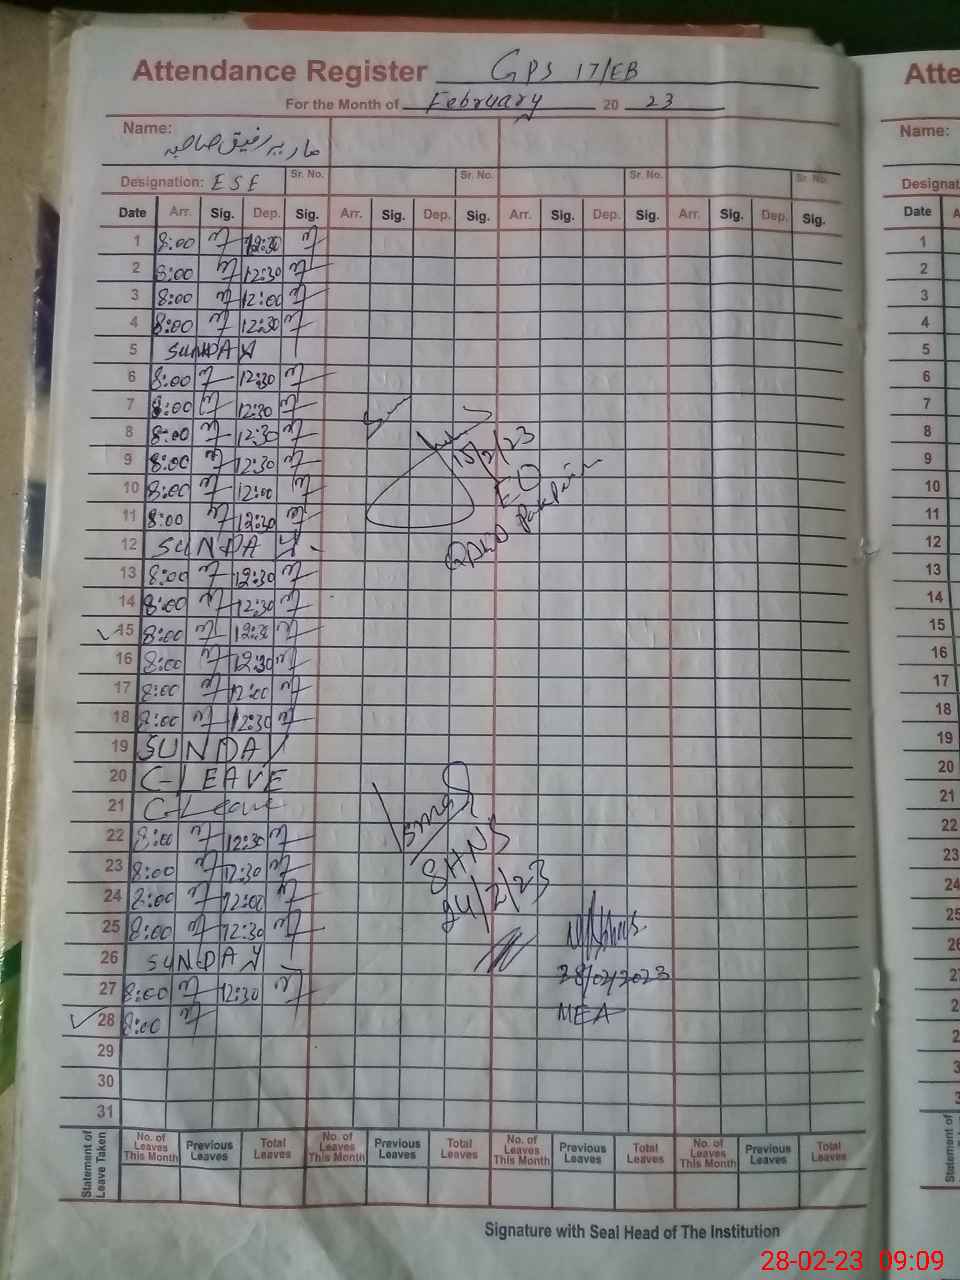 Attendance Register GPS 17/EB
For the Month of February 20 23
Name: ماریہ رفیق صاحبہ
Designation: ESE Sr. No. Sr. No. Sr. No. Sr. No.
Date Arr. Sig. Dep. Sig. Arr. Sig. Dep. Sig. Arr. Sig. Dep. Sig. Arr. Sig. Dep. Sig.
1 8:00 12:30
2 8:00 12:30
3 8:00 12:00
4 8:00 12:30
5 SUNDAY
6 8:00 12:30
7 8:00 12:30
8 8:00 12:30
9 8:00 12:30
10 8:00 12:00
11 8:00 12:30
12 SUNDAY
13 8:00 12:30
14 8:00 12:30
15 8:00 12:30
16 8:00 12:30
17 8:00 12:00
18 8:00 12:30
19 SUNDAY
20 C-LEAVE
21 C-Leave
22 8:00 12:30
23 8:00 12:30
24 8:00 12:00
25 8:00 12:30
26 SUNDAY
27 8:00 12:30
28 8:00
29
30
31
15/2/23
EO
SHNS
24/2/23
28/02/2023
MEA
Statement of Leave Taken
No. of Leaves This Month Previous Leaves Total Leaves No. of Leaves This Month Previous Leaves Total Leaves No. of Leaves This Month Previous Leaves Total Leaves No. of Leaves This Month Previous Leaves Total Leaves
Signature with Seal Head of The Institution
Atte
Name:
Designat
Date A
1
2
3
4
5
6
7
8
9
10
11
12
13
14
15
16
17
18
19
20
21
22
23
24
25
26
28-02-23 09:09